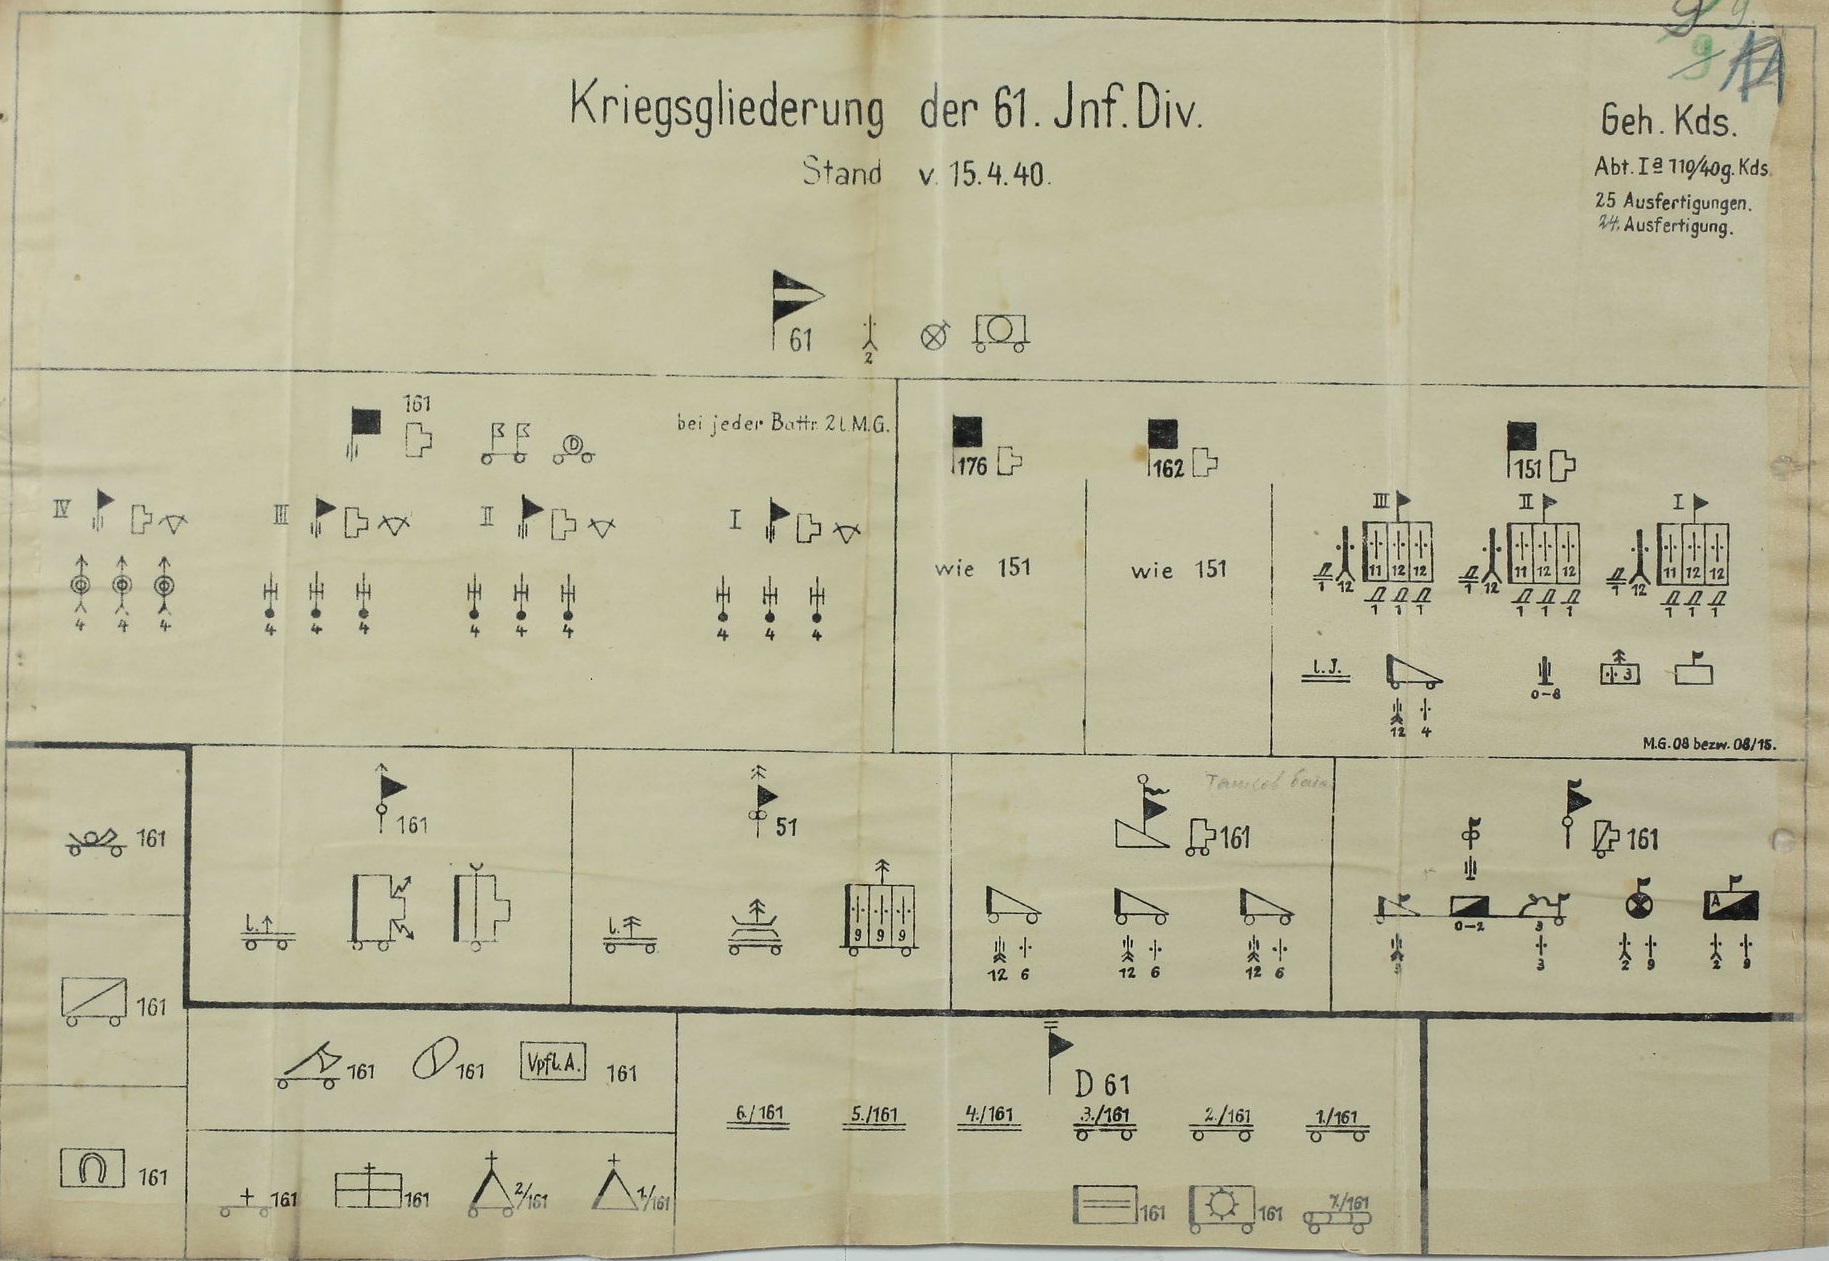 Kriegsgliederung der 61. Jnf. Div.
Stand v. 15.4.40.
Geh. Kds.
Abt. Ia 110/40 g. Kds.
25 Ausfertigungen.
24. Ausfertigung.
61
2
161
bei jeder Battr. 2 l. M.G.
IV
III
II
I
D
4 4 4
4 4 4
4 4 4
4 4 4
176
162
151
wie 151
wie 151
III
II
I
11 12 12
11 12 12
11 12 12
1 12
1 12
1 12
1 1 1
1 1 1
1 1 1
l. J.
12 4
0-8
3
M.G. 08 bezw. 08/15.
161
161
161
161
l.
51
l.
9 9 9
161
12 6
12 6
12 6
161
0-2
3
A
3
3
2 9
2 9
161
161
Vpfl. A.
161
161
161
2/161
1/161
D 61
6./161
5./161
4./161
3./161
2./161
1./161
161
161
7./161